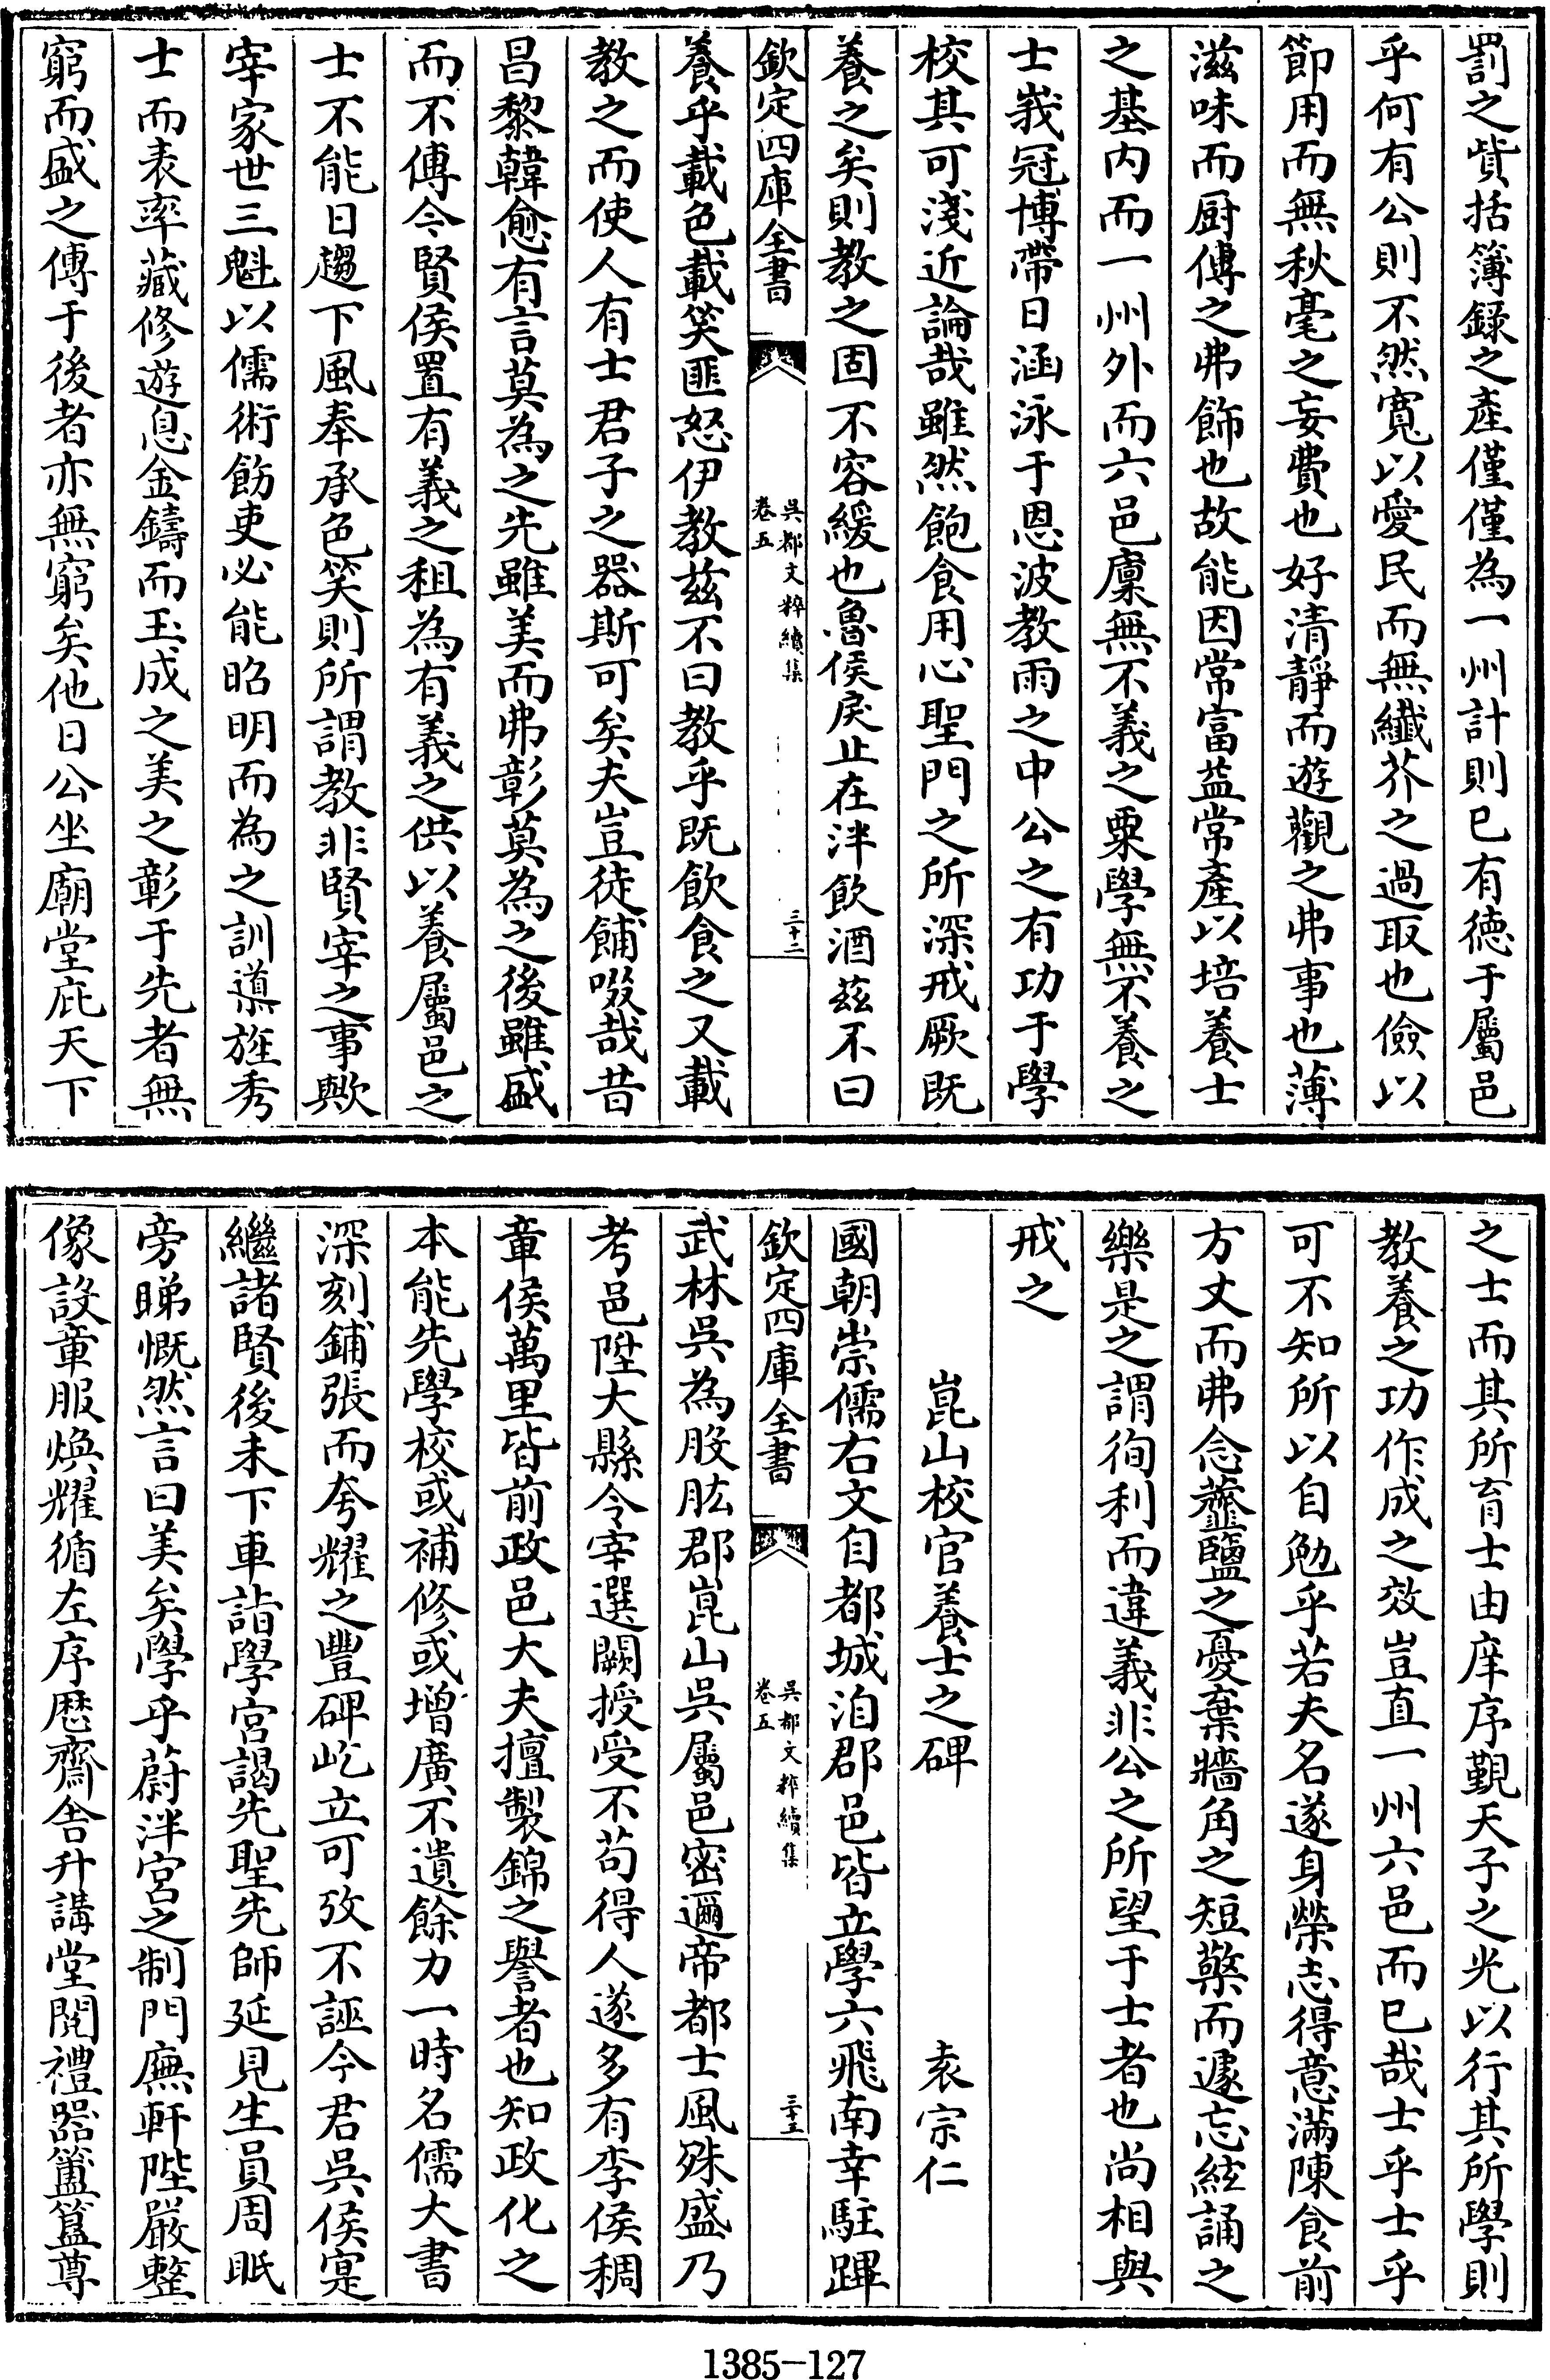 罰之貲括簿録之產僅僅為一州計則已有德于屬邑
乎何有公則不然寛以愛民而無纎芥之過取也儉以
節用而無秋毫之妄費也好清靜而遊觀之弗事也薄
滋味而厨傳之弗飾也故能因常富益常產以培養士
之基内而一州外而六邑廩無不義之粟學無不養之
士峩冠博帶日涵泳于恩波教雨之中公之有功于學
校其可淺近論哉雖然飽食用心聖門之所深戒厥既
養之矣則教之固不容緩也魯侯戾止在泮飲酒兹不曰
欽定四庫全書
吳都文粹續集
卷五
三十二
養乎載色載笑匪怒伊教兹不曰教乎既飲食之又載
教之而使人有士君子之器斯可矣夫豈徒餔啜哉昔
昌黎韓愈有言莫為之先雖美而弗彰莫為之後雖盛
而不傳今賢侯置有義之租為有義之供以養屬邑之
士不能日趨下風奉承色笑則所謂教非賢宰之事歟
宰家世三魁以儒術飭吏必能昭明而為之訓導旌秀
士而表率藏修遊息金鑄而玉成之美之彰于先者無
窮而盛之傳于後者亦無窮矣他日公坐廟堂庇天下
之士而其所育士由庠序覲天子之光以行其所學則
教養之功作成之效豈直一州六邑而已哉士乎士乎
可不知所以自勉乎若夫名遂身榮志得意滿陳食前
方丈而弗念虀鹽之憂棄牆角之短檠而遽忘絃誦之
樂是之謂徇利而違義非公之所望于士者也尚相與
戒之
崑山校官養士之碑　袁宗仁
國朝崇儒右文自都城洎郡邑皆立學六飛南幸駐蹕
欽定四庫全書
吳都文粹續集
卷五
三十三
武林吳為股肱郡崑山吳屬邑密邇帝都士風殊盛乃
考邑陞大縣令宰選闕授受不苟得人遂多有李侯稠
章侯萬里皆前政邑大夫擅製錦之譽者也知政化之
本能先學校或補修或增廣不遺餘力一時名儒大書
深刻鋪張而夸耀之豐碑屹立可攷不誣今君吳侯寔
繼諸賢後未下車詣學宮謁先聖先師延見生員周眂
旁睇慨然言曰美矣學乎蔚泮宮之制門廡軒陛嚴整
像設章服煥耀循左序歴齋舎升講堂閱禮器簠簋尊
1385-127